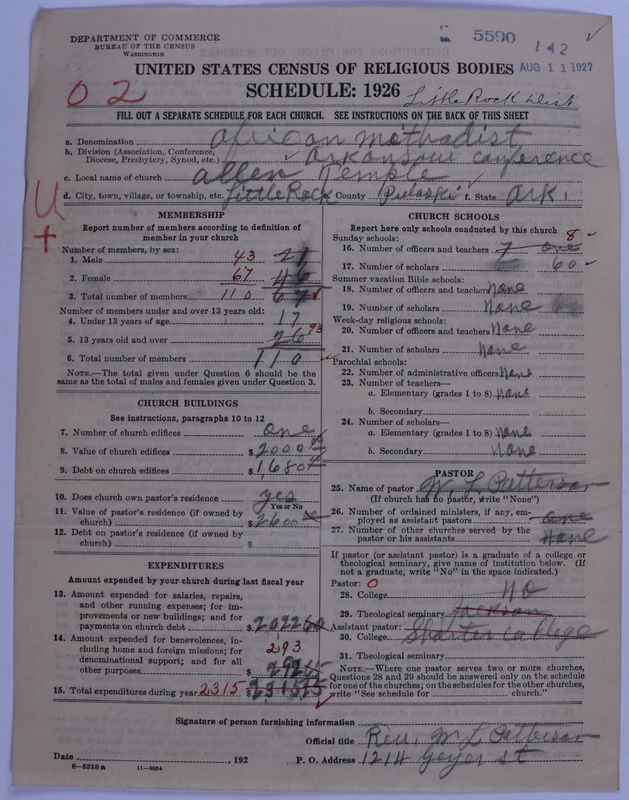 DEPARTMENT OF COMMERCE
BUREAU OF THE CENSUS
WASHINGTON
5590
142
AUG 11 1927
UNITED STATES CENSUS OF RELIGIOUS BODIES
SCHEDULE: 1926
02
Little Rock Dist
FILL OUT A SEPARATE SCHEDULE FOR EACH CHURCH. SEE INSTRUCTIONS ON THE BACK OF THIS SHEET
a. Denomination African Methodist
b. Division (Association, Conference, Diocese, Presbytery, Synod, etc.) Arkansas conference
c. Local name of church Allen Temple
d. City, town, village, or township, etc. Little Rock County Pulaski f. State Ark.
U
+
MEMBERSHIP
Report number of members according to definition of
member in your church
Number of members, by sex:
1. Male 43 21
2. Female 67 46
3. Total number of members 110 67
Number of members under and over 13 years old:
4. Under 13 years of age 17
5. 13 years old and over 93
6. Total number of members 110
NOTE.—The total given under Question 6 should be the
same as the total of males and females given under Question 3.
CHURCH BUILDINGS
See instructions, paragraphs 10 to 12
7. Number of church edifices one
8. Value of church edifices $ 2000
9. Debt on church edifices $ 1,680
10. Does church own pastor's residence yes
Yes or No
11. Value of pastor's residence (if owned by
church) $ 2600
12. Debt on pastor's residence (if owned by
church) $
EXPENDITURES
Amount expended by your church during last fiscal year
13. Amount expended for salaries, repairs,
and other running expenses; for im-
provements or new buildings; and for
payments on church debt $ 2022
14. Amount expended for benevolences, in-
cluding home and foreign missions; for
denominational support; and for all
other purposes 293 $
15. Total expenditures during year 2315 $
CHURCH SCHOOLS
Report here only schools conducted by this church
Sunday schools: 8
16. Number of officers and teachers 7 one
17. Number of scholars 60
Summer vacation Bible schools:
18. Number of officers and teachers None
19. Number of scholars None
Week-day religious schools:
20. Number of officers and teachers None
21. Number of scholars None
Parochial schools:
22. Number of administrative officers None
23. Number of teachers—
a. Elementary (grades 1 to 8) None
b. Secondary
24. Number of scholars—
a. Elementary (grades 1 to 8) None
b. Secondary None
PASTOR
25. Name of pastor W. L. Patterson
(If church has no pastor, write "None")
26. Number of ordained ministers, if any, em-
ployed as assistant pastors one
27. Number of other churches served by the
pastor or his assistants None
If pastor (or assistant pastor) is a graduate of a college or
theological seminary, give name of institution below. (If
not a graduate, write "No" in the space indicated.)
Pastor: 0
28. College No
29. Theological seminary Jackson
Assistant pastor:
30. College Shorter College
31. Theological seminary
NOTE.—Where one pastor serves two or more churches,
Questions 28 and 29 should be answered only on the schedule
for one of the churches; on the schedules for the other churches,
write "See schedule for church."
Signature of person furnishing information
Official title Rev. W L Patterson
Date , 192 P. O. Address 1214 Geyer st
8—5518 a 11—9054